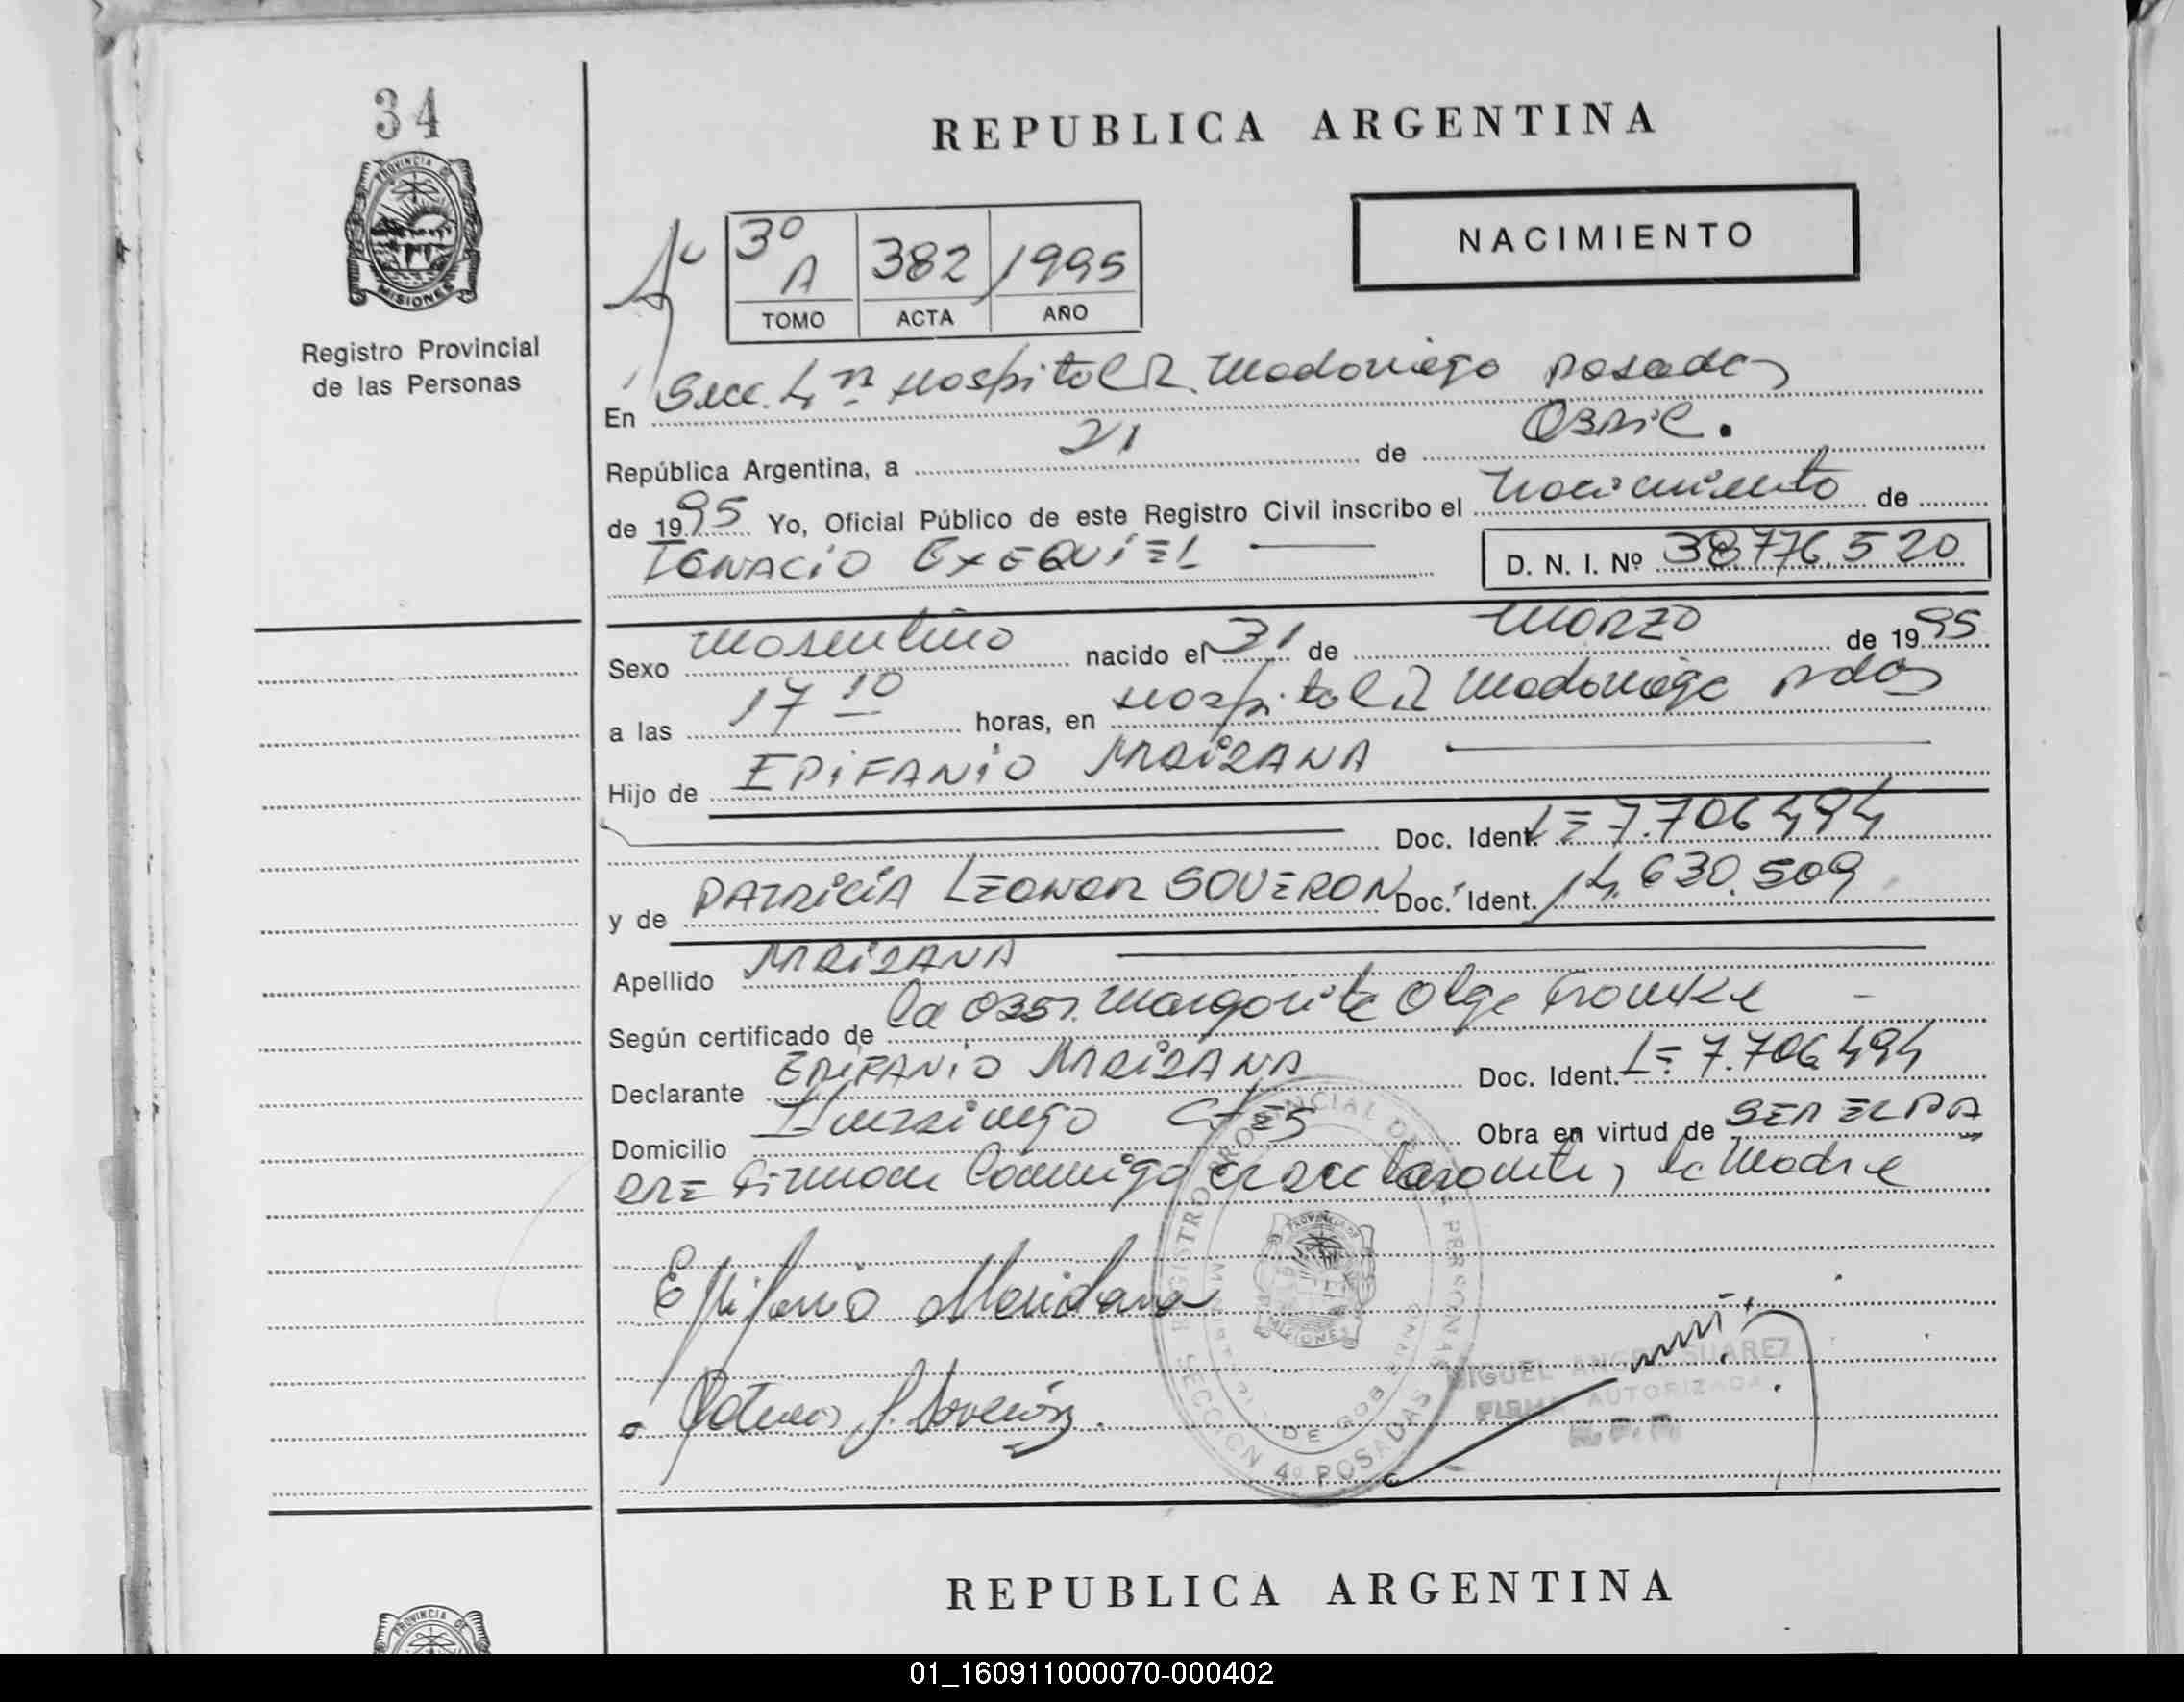 34
PROVINCIA DE
MISIONES
Registro Provincial
de las Personas
REPUBLICA ARGENTINA
NACIMIENTO
3º A 382 1995
TOMO ACTA AÑO
En Secc. 4ª Hospital R. Madariaga Posadas
República Argentina, a 21 de Abril.
de 1995 Yo, Oficial Público de este Registro Civil inscribo el Nacimiento de
IGNACIO EXEQUIEL D. N. I. Nº 38.776.520
Sexo Masculino nacido el 31 de Marzo de 1995
a las 17 10 horas, en Hospital R Madariaga Pdas
Hijo de EPIFANIO
Doc. Ident. LE 7.706494
y de PATRICIA LEONOR SOVERON Doc. Ident. 14.630.509
Apellido
Según certificado de la Obst. Margarita Olga
Declarante EPIFANIO Doc. Ident. LE 7.706.494
Domicilio Ituzaingo CTES Obra en virtud de SER EL PA
DRE Firman Conmigo el declarante, la Madre
Epifanio
REGISTRO PROVINCIAL DE LAS PERSONAS
MINISTERIO DE GOBIERNO
PROVINCIA DE
MISIONES
SECCION 4º POSADAS
MIGUEL ANGEL SUAREZ
FIRMA AUTORIZADA
R.P.P.
REPUBLICA ARGENTINA
PROVINCIA DE
01_160911000070-000402